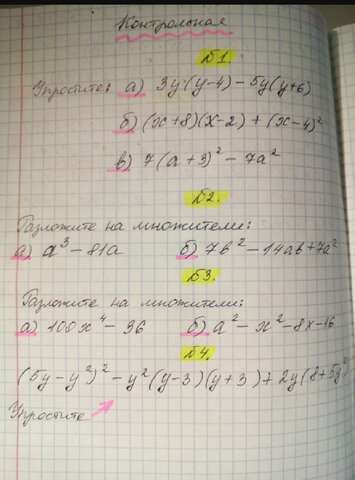 Контрольная
№1
Упростите: а) 3y·(y-4) - 5y(y+6)
б) (x+8)(x-2) + (x-4)²
в) 7(a+3)² - 7a²
№2.
Разложите на множители:
а) a³ - 81a б) 7b² - 14ab + 7a²
№3.
Разложите на множители:
а) 100x⁴ - 36 б) a² - x² - 8x - 16
№4.
(5y - y²)² - y²(y-3)(y+3) + 2y(8+5y²
Упростите